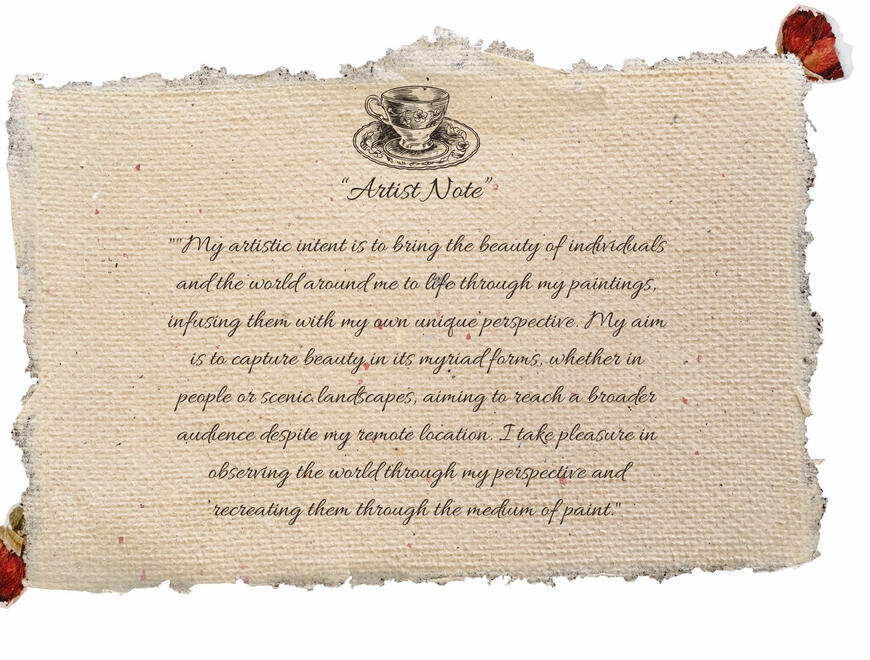 “Artist Note”
""My artistic intent is to bring the beauty of individuals
and the world around me to life through my paintings,
infusing them with my own unique perspective. My aim
is to capture beauty in its myriad forms, whether in
people or scenic landscapes, aiming to reach a broader
audience despite my remote location. I take pleasure in
observing the world through my perspective and
recreating them through the medium of paint."